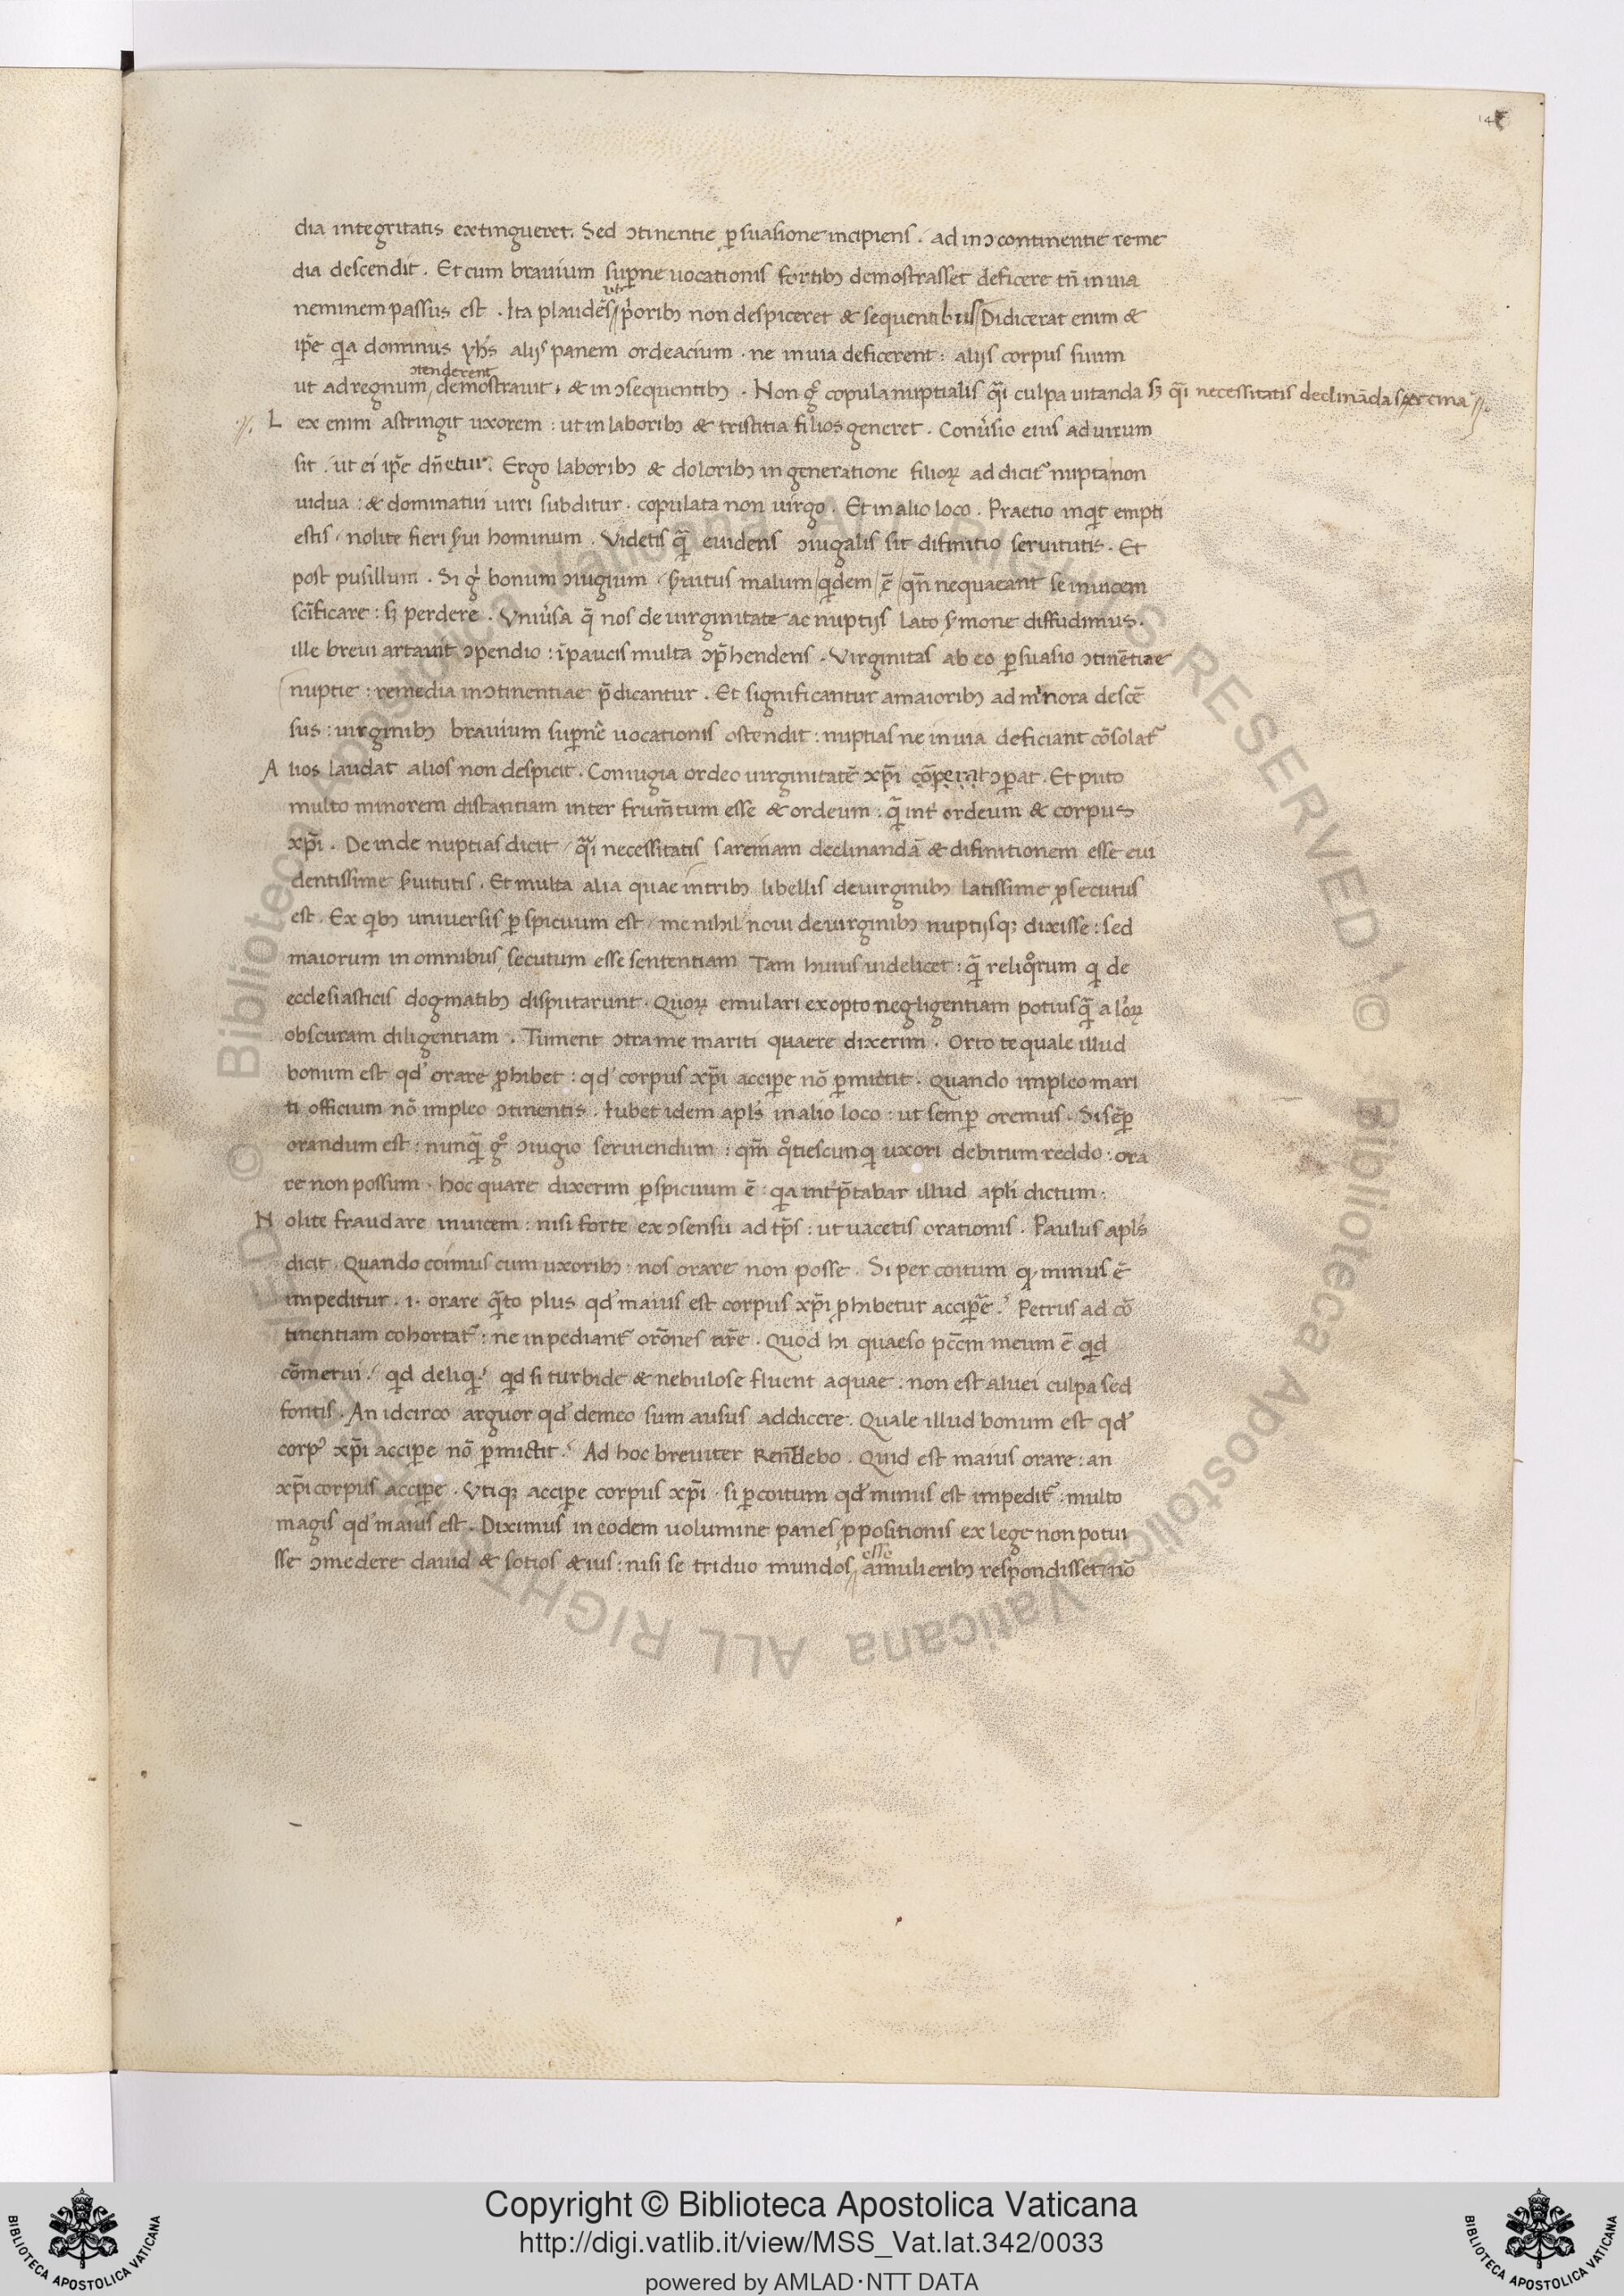 14
dia integritatis extingueret. Sed ↄtinentie ꝑsuasione incipiens. ad inↄcontinentie reme
dia descendit. Et cum brauium suꝑne uocationis fortibꝫ demostrasset deficere tn̄ in uia
neminem passus est. Ita plaudēs priͥoribꝫ ut non despiceret & sequentibus Didicerat enim &
ip̄e qͥa dominus yhs̄ alijs panem ordeacium. ne in uia deficerent: alijs corpus suum
ut ad regnum ↄtenderent demostrauit. & in ↄsequentibꝫ. Non gͦ copula nuptialis qͣ̄i culpa uitanda sꝫ qͣ̄i necessitatis declināda sarcina
Lex enim astringit uxorem: ut in laboribꝫ & tristitia filios generet. Conu̓sio eius ad uirum
sit. ut ei ip̄e dn̄etur. Ergo laboribꝫ & doloribꝫ in generatione filioꝝ addicit᷑ nupta non
uidua: & dominatui uiri subditur. copulata non uirgo. Et in alio loco. Praetio inqͥt empti
estis. nolite fieri s̓ui hominum. Videtis qͣ̄ euidens ↄiugalis sit difinitio seruitutis. Et
post pusillum. Si gͥ bonum ↄiugium. s̓uitus malum qͥdem ē qn̄ nequaeant se inuicem
sc̄ificare: sꝫ perdere. Vniu̓sa q̄ nos de uirginitate ac nuptijs lato s̓mone diffudimus.
ille breui artauit ↄpendio: ī paucis multa ↄp̄hendens. Virginitas ab eo ꝑsuasio ↄtinētiae
nuptie: remedia inↄtinentiae p̄dicantur. Et significantur a maioribꝫ ad minora descē
sus: uirginibꝫ brauium suꝑne uocationis ostendit: nuptias ne in uia deficiant cōsolat᷑
Alios laudat alios non despicit. Coniugia ordeo uirginitatē xp̄i cōperat ↄꝑat. Et puto
multo minorem distantiam inter frum̄tum esse & ordeum: qͣ̄ int̓ ordeum & corpus
xp̄i. Deinde nuptias dicit. qͣ̄i necessitatis sarcinam declinandā & difinitionem esse eui
dentissime s̓uitutis. Et multa alia quae in tribꝫ libellis de uirginibꝫ latissime ꝓsecutus
est. Ex qͥbꝫ uniuersis ꝑspicuum est. me nihil noui de uirginibꝫ nuptijsqꝫ dixisse: sed
maiorum in omnibus secutum esse sententiam Tam huius uidelicet: qͣ̄ reliqͦrum qͥ de
ecclesiasticis dogmatibꝫ disputarunt. Quoꝝ emulari exopto negligentiam potiusqͣ̄ alͥoꝝ
obscuram diligentiam. Tument ↄtra me mariti quare dixerim. Oro te quale illud
bonum est qd̓ orare ꝓhibet: qd̓ corpus xp̄i acciꝑe nō ꝑmictit. Quando impleo mari
ti officium nō impleo ↄtinentis. Iubet idem apl̓s in alio loco: ut semꝑ oremus. Si sēꝑ
orandum est: nunqͣ̄ gͦ ↄiugio seruiendum: qm̄ qͦtiescunqꝫ uxori debitum reddo: ora
re non possum. hoc quare dixerim ꝑspicuum ē: qͥa int̓p̄tabar illud apl̓i dictum.
Nolite fraudare inuicem: nisi forte ex ↄsensu ad tp̄s: ut uacetis orationis. Paulus apl̓s
dicit. Quando coimus cum uxoribꝫ: nos orare non posse. Si per coitum qͥ minus ē
impeditur. i. orare qͣ̄to plus qd̓ maius est corpus xp̄i ꝓhibetur acciꝑe? Petrus ad cō
tinentiam cohortat᷑: ne inpediant᷑ orōnes nr̄e. Quod hi quaeso pc̄cm meum ē qͥd
cōmerui? qͥd deliqͥ? qͥd si turbide & nebulose fluent aquae: non est aluei culpa sed
fontis. An idcirco arguor qd̓ de meo sum ausus addicere. Quale illud bonum est qd̓
corp᷒ xp̄i acciꝑe nō ꝑmictit? Ad hoc breuiter Rendebo. Quid est maius orare: an
xp̄i corpus acciꝑe. Vtiqꝫ acciꝑe corpus xp̄i. si ꝑ coitum qd̓ minus est impedit᷑: multo
magis qd̓ maius est. Diximus in eodem uolumine panes ꝓpositionis ex lege non potui
sse ↄmedere dauid & sotios eius: nisi se triduo mundos esse a mulieribꝫ respondisset. nō
© Biblioteca Apostolica Vaticana ALL RIGHTS RESERVED
Copyright © Biblioteca Apostolica Vaticana
http://digi.vatlib.it/view/MSS_Vat.lat.342/0033
powered by AMLAD·NTT DATA
BIBLIOTECA APOSTOLICA VATICANA
BIBLIOTECA APOSTOLICA VATICANA